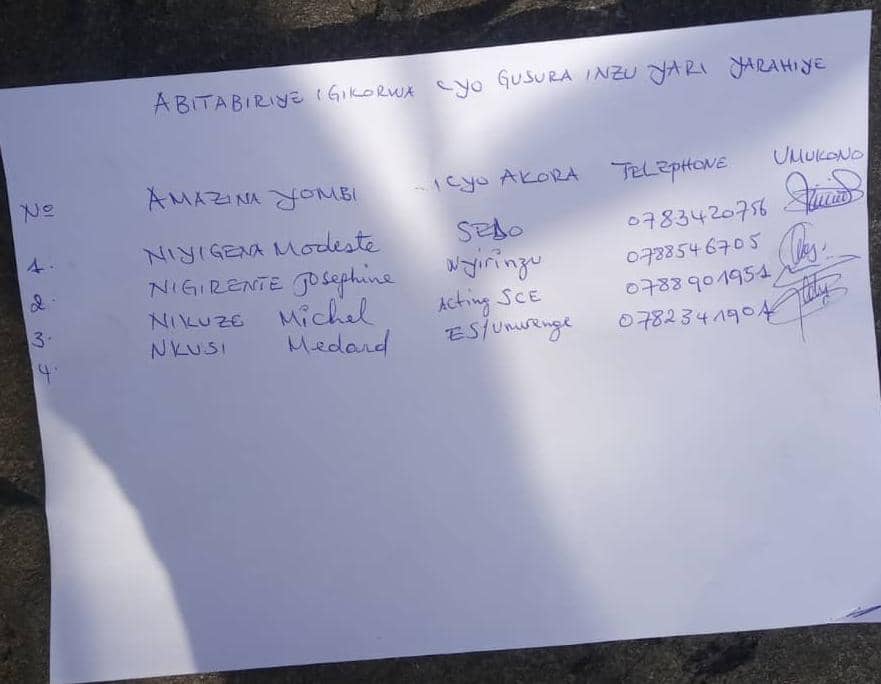 ABITABIRIYE IGIKORWA CYO GUSURA INZU YARI YARAHIYE
No AMAZINA YOMBI ICYO AKORA TELEPHONE UMUKONO
1. NIYIGENA Modeste SEDO 0783420756
2. NIGIRENTE Josephine Nyirinzu 0788546705
3. NIKUZE Michel Acting SCE 0788901951
4. NKUSI Medard ES/Umurenge 0782341901